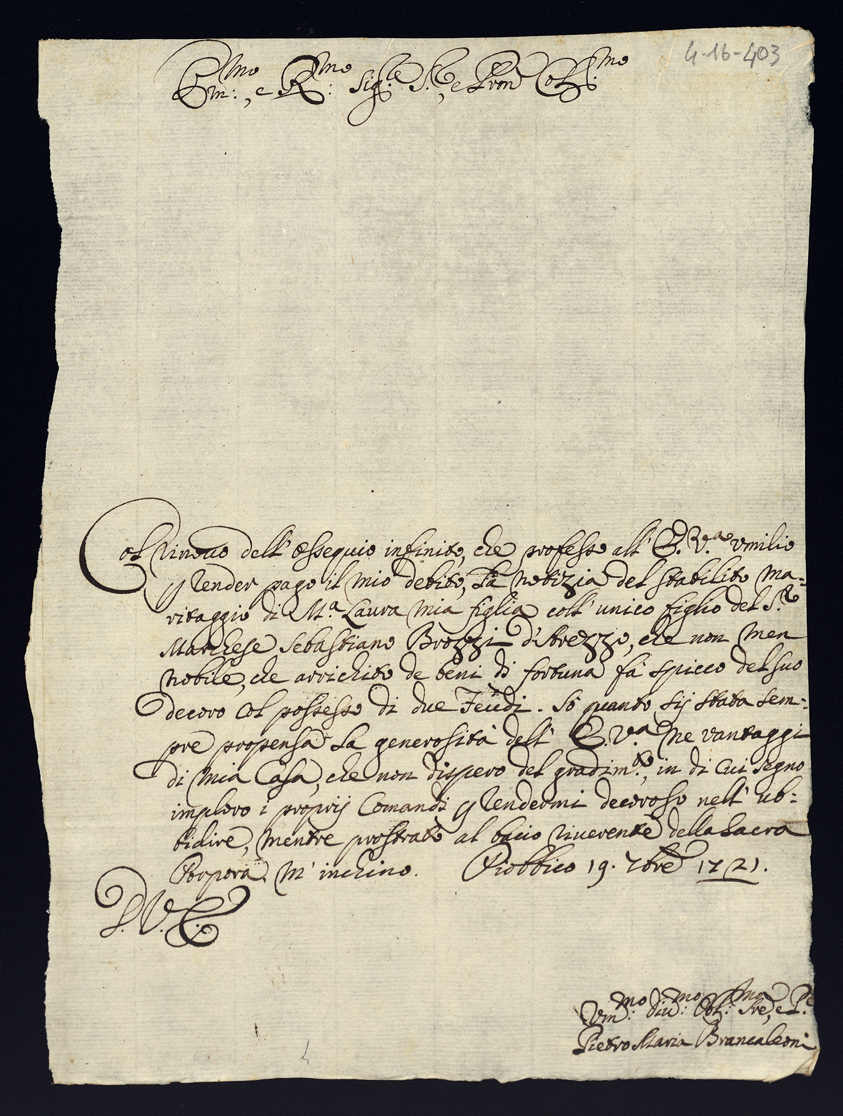 4-16-403
Em:mo, e R:mo Sig:re S:re, e Pron Col:mo
Col rinovo dell' ossequio infinito, che professo all' E. V.a umilio
p render pago il mio debito, la notizia del stabilito ma-
ritaggio di M.a Laura mia figlia coll' unico figlio del S.r
Marchese Sebastiano Brozzi d'Arezzo, che non men
nobile, che arrichito de beni di fortuna fà spicco del suo
decoro col possesso di due Feudi. Sò quanto sij stata sem-
pre propensa la generosità dell' E. V.a ne vantaggi
di mia Casa, che non dispero del gradim.to, in di cui segno
imploro i proprij Comandi p rendermi decoroso nell' ub-
bidire, mentre prostrato al bacio riverente della Sacra
Porpora m' inchino. Piobbico 19. 7bre 1721.
D. V. E.
Um:mo Div:mo Obl:mo Sre, e
Pietro Maria Brancaleoni